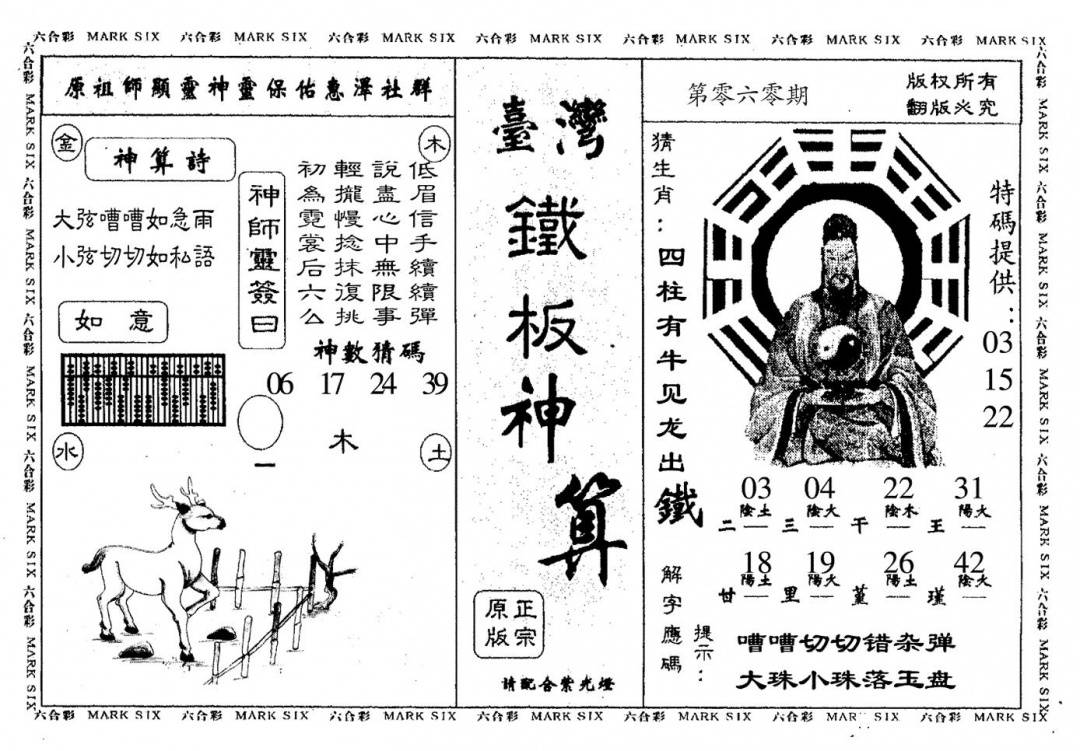 六合彩 MARK SIX 六合彩 MARK SIX 六合彩 MARK SIX 六合彩 MARK SIX 六合彩 MARK SIX 六合彩 MARK SIX 六合彩 MARK SIX
六合彩 MARK SIX 六合彩 MARK SIX 六合彩 MARK SIX 六合彩 MARK SIX 六合彩 MARK SIX
原祖師顯靈神靈保佑惠澤社群
金
木
神算詩
大弦嘈嘈如急雨
小弦切切如私語
如意
神師靈簽曰
低眉信手續續彈
說盡心中無限事
輕攏慢捻抹復挑
初為霓裳后六么
神數猜碼
06 17 24 39
木
一
水
土
臺灣
鐵板神算
正宗
原版
請配合紫光燈
第零六零期
版权所有
翻版必究
猜生肖：四柱有牛见龙出鐵
特碼提供：
03
15
22
03 04 22 31
陰土 陰火 陰木 陽火
二 三 干 王
18 19 26 42
陽土 陽火 陽土 陰火
甘 里 堇 瑾
解字應碼
提示：
嘈嘈切切错杂弹
大珠小珠落玉盘
六合彩 MARK SIX 六合彩 MARK SIX 六合彩 MARK SIX 六合彩 MARK SIX 六合彩 MARK SIX
六合彩 MARK SIX 六合彩 MARK SIX 六合彩 MARK SIX 六合彩 MARK SIX 六合彩 MARK SIX 六合彩 MARK SIX 六合彩 MARK SIX